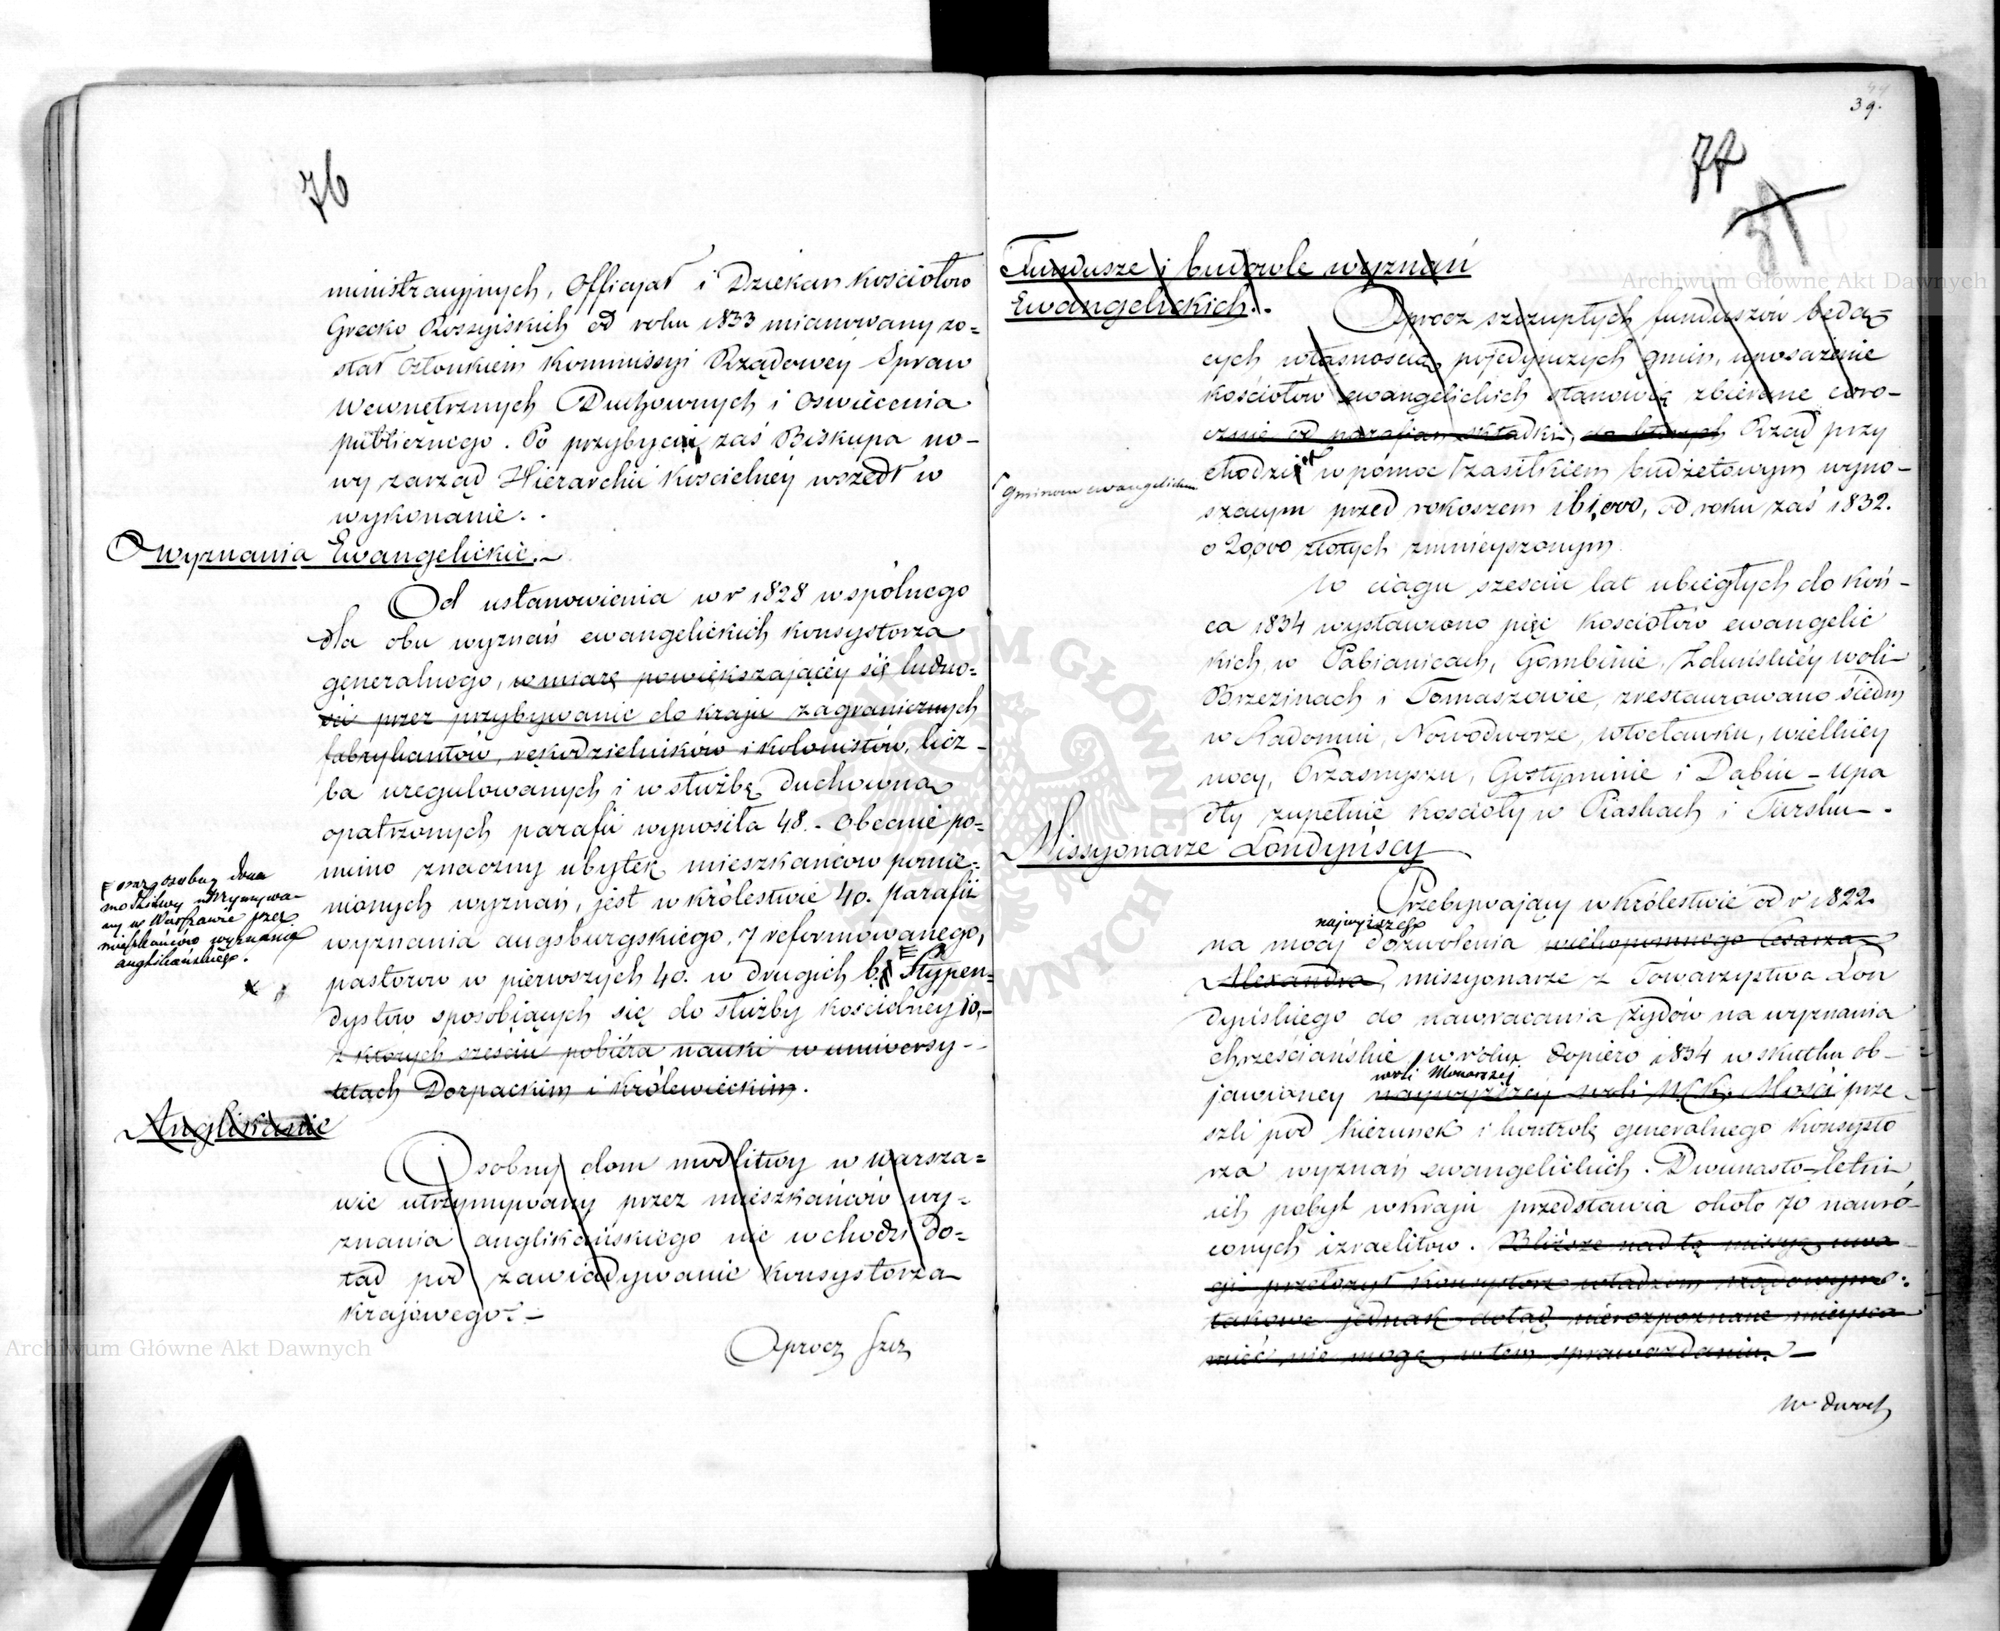 76
ministracyjnych, Officyał i Dziekan Kościołów
Grecko Rossyiskich od roku 1833 mianowany zo-
stał Członkiem Kommissyi Rządowey Spraw
Wewnętrznych Duchownych i Oświecenia
publicznego. Po przybyciu zaś Biskupa no-
wy zarząd Hierarchii Kościelney wszedł w
wykonanie.
Wyznania Ewangelickie.
Od ustanowienia w r 1828 wspólnego
dla obu wyznań ewangelickich konsystorza
generalnego, w miarę powiększającéy się ludno-
ści przez przybywanie do kraju zagranicznych
fabrykantów, rękodzielników i kolonistów, licz-
ba uregulowanych i w służbę duchowną
opatrzonych parafii wynosiła 48. Obecnie po-
mimo znaczny ubytek mieszkańców pomie-
nionych wyznań, jest w królestwie 40. parafii
wyznania augsburgskiego, 7 reformowanego,
pastorów w pierwszych 40. w drugich 6. Stypen-
dystów sposobiących się do służby kościelney 10,
z których sześciu pobiéra nauki w uniwersy-
tetach Dorpackim i Królewieckim.
oraz osobny dom
modlitwy utrzymywa-
ny w Warszawie przez
mieszkańców wyznania
anglikańskiego.
Anglikanie
Osobny dom modlitwy w Warsza-
wie utrzymywany przez mieszkańców wy-
znania anglikańskiego nie wchodzi do-
tąd pod zawiadywanie Konsystorza
Krajowego.
Oprocz szcz
39.
77
Fundusze i budowle wyznań
Ewangelickich.
Oprocz szczupłych funduszów będą-
cych własnością pojedynczych gmin, uposażenie
kościołów ewangelickich stanowią zbierane coro-
cznie od parafian składki, do których Rząd przy
chodzi w pomoc zasiłkiem budżetowym wyno-
gminom ewangelickim
szącym przed rokoszem 161,000, od roku zaś 1832.
o 20,000 złotych zmnieyszonym.
W ciągu sześciu lat ubiegłych do koń-
ca 1834 wystawiono pięć kościołów ewangelic
kich, w Pabianicach, Gombinie, Zduńskiéy woli
Brzezinach i Tomaszowie, zrestaurowano siedm
w Radomiu, Nowodworze, Włocławku, wielkiey
nocy, Przasnyszu, Gostyninie i Dąbiu - upa
dły zupełnie kościoły w Piaskach i Tursku.
Missyonarze Londyńscy
Przebywający w królestwie od r 1822.
najwyższego
na mocy dozwolenia wiekopomnego Cesarza
Alexandra, missyonarze z Towarzystwa Lon
dyńskiego do nawracania żydów na wyznania
chrześciańskie w roku dopiero 1834 w skutku ob-
woli Monarszej
jawioney najwyższey woli W.C.K. Mości prze-
szli pod kierunek i kontrolę generalnego Konsysto
rza wyznań ewangelickich. Dwunasto-letni
ich pobyt w kraju przedstawia około 70 nawró-
conych izraelitów. Bliższe nad tą missyą uwa
gi przełożył konsystorz władzom rządowym:
takowe jednak dotąd nierozpoznane mieysca
mieć nie mogą w tém sprawozdaniu.
W dwoch
Archiwum Główne Akt Dawnych
Archiwum Główne Akt Dawnych
ARCHIWUM GŁÓWNE AKT DAWNYCH